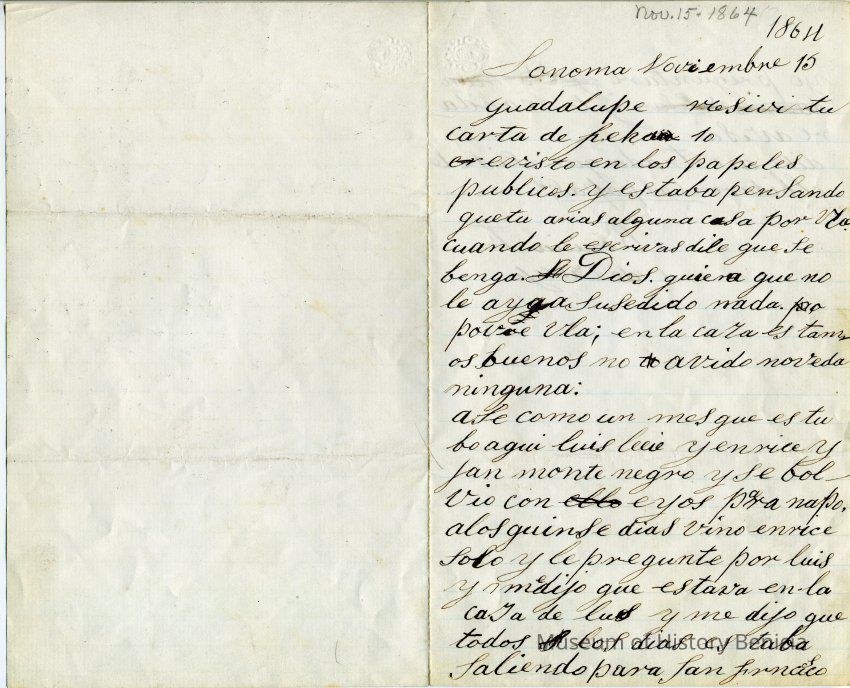 Nov. 15 - 1864
1864
Sonoma Noviembre 15
Guadalupe resivi tu
carta de feha 10
er evisto en los papeles
publicos. y estaba pensando
que tu arias alguna cosa por Vla.
cuando le escrivas dile que se
benga. Dios. quiera que no
le ayga susedido nada.
povre Vla; en la caza estam
os buenos no avido noveda
ninguna:
ase como un mes que estu
bo aqui luis y enrice y
Jan monte negro y se bol-
vio con ello eyos para napo.
a los quinse dias vino enrice
solo y le pregunte por luis
y me dijo que estava en la
caza de luis y me dijo que
todos los dias estaba
saliendo para San frncisco
Museum of History Benicia